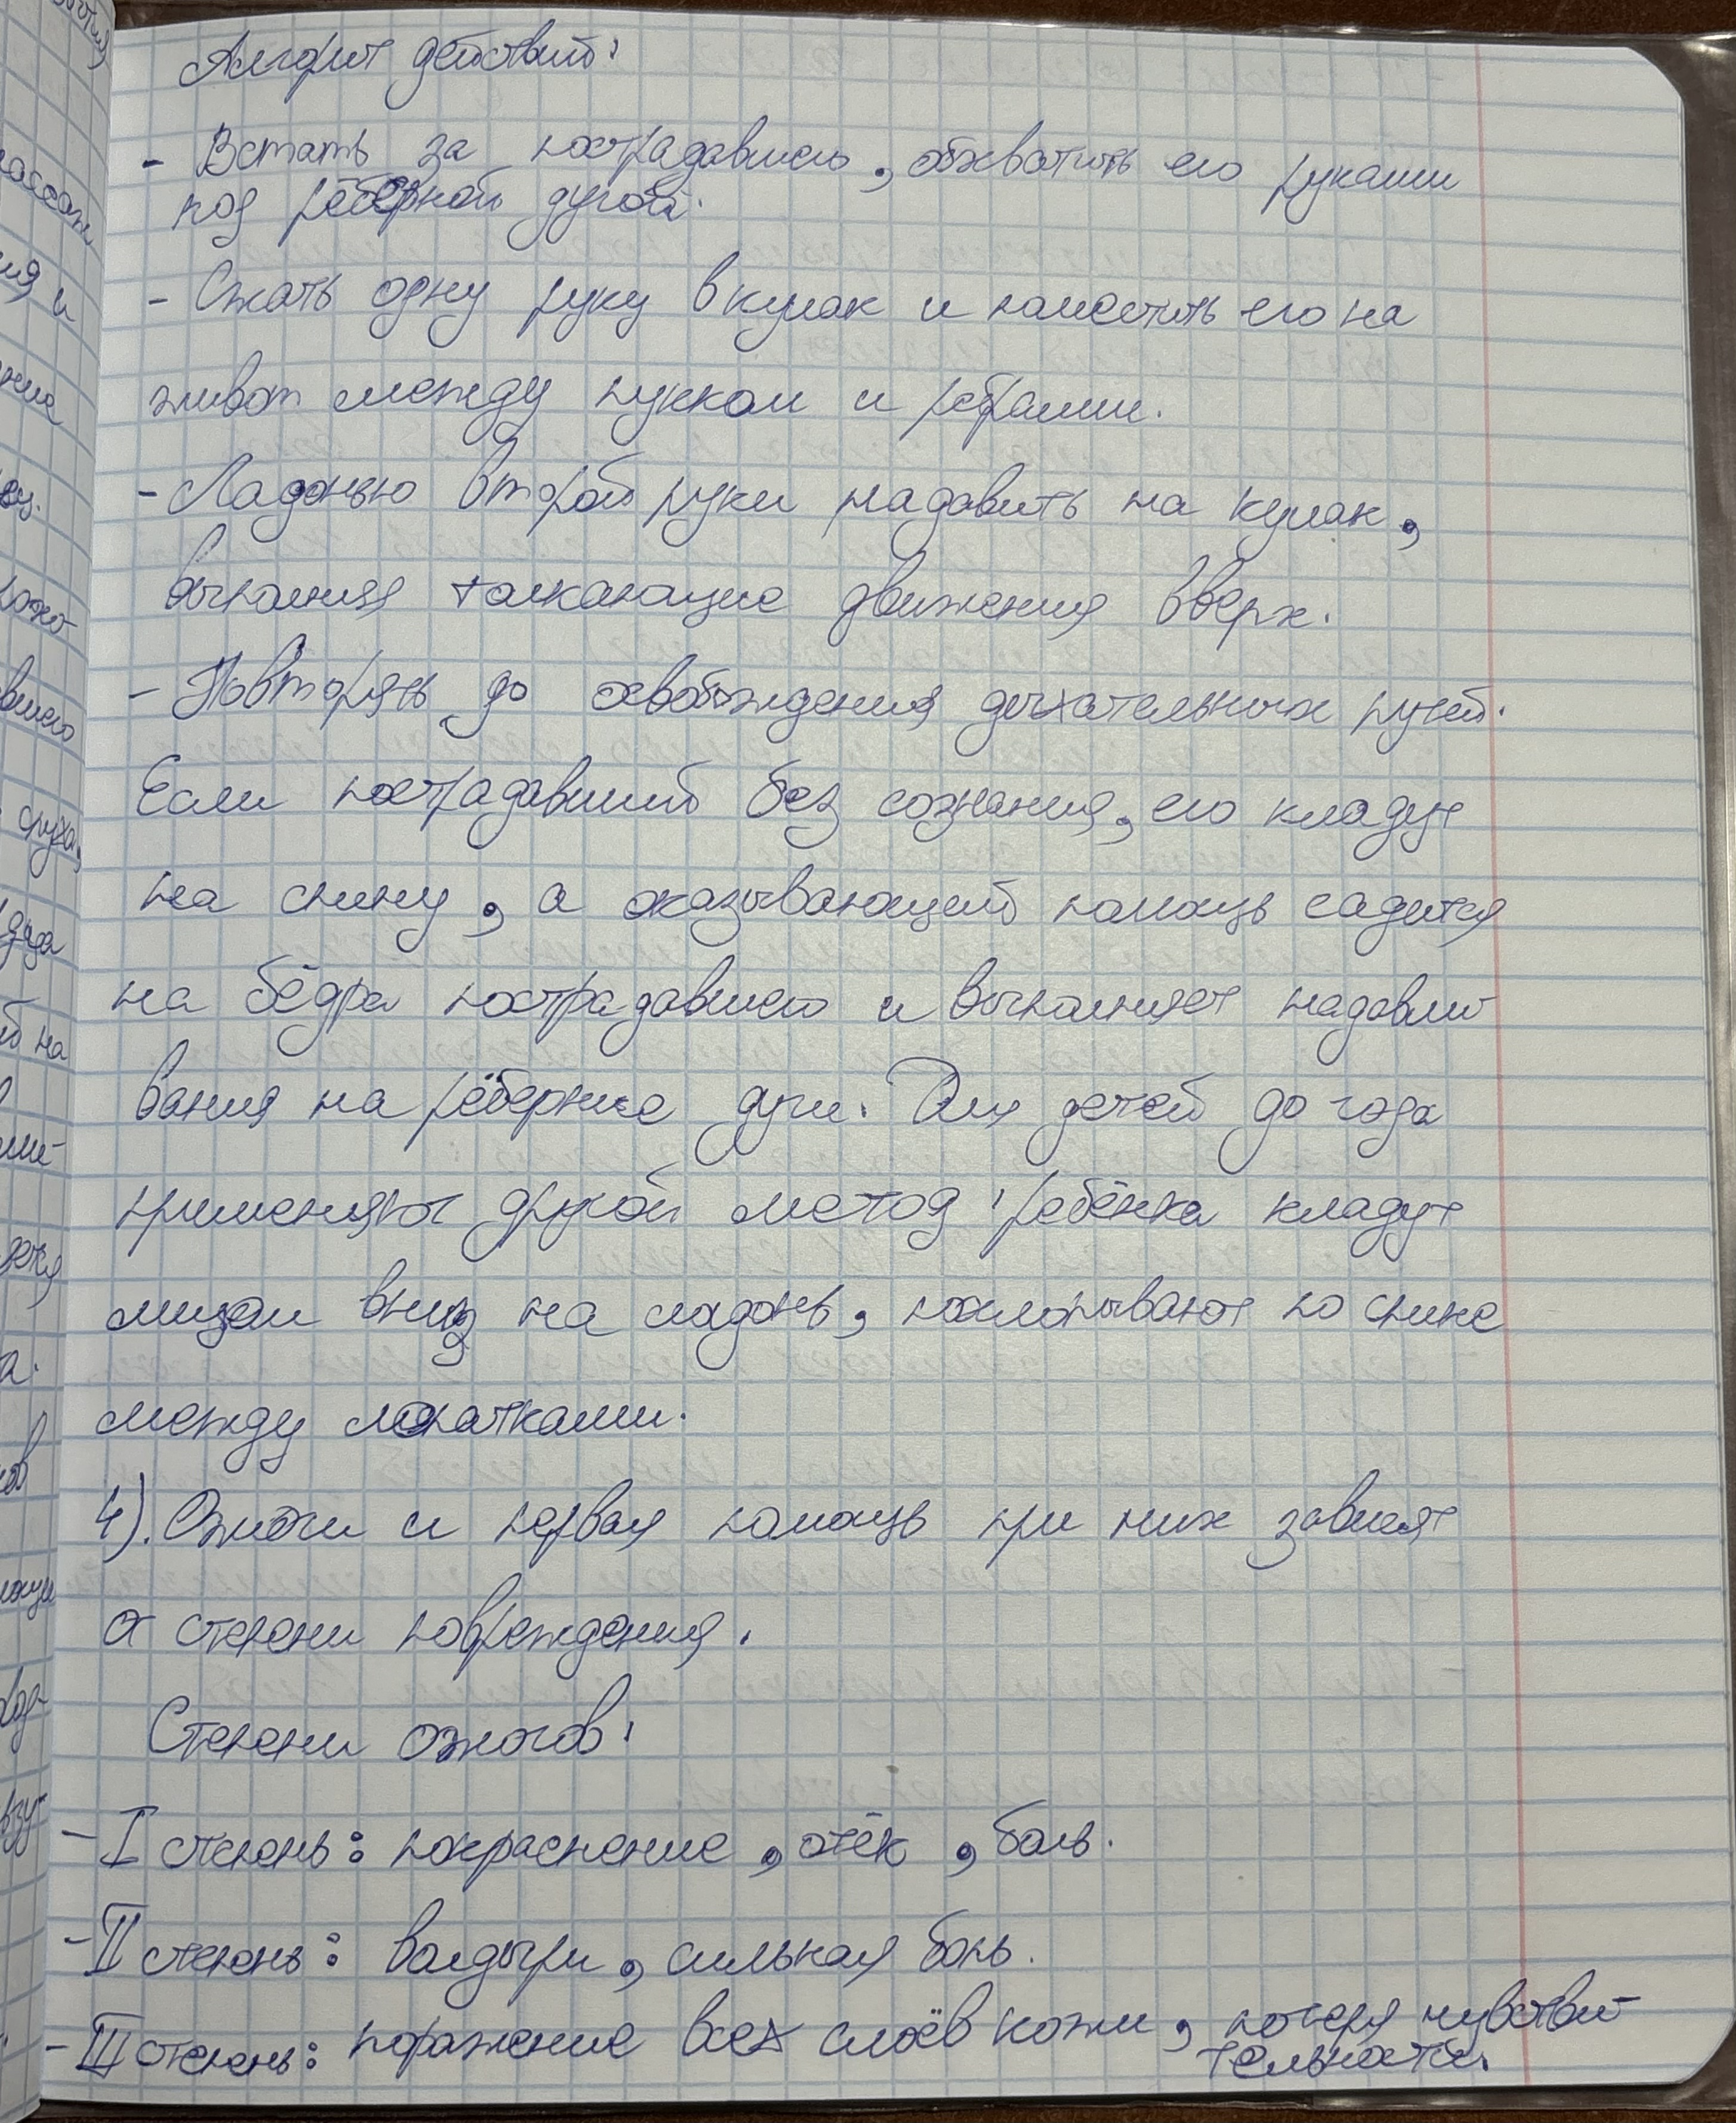 Алгорит действий:
- Встать за пострадавшего, обхватить его руками
под рёберной дугой.
- Сжать одну руку в кулак и поместить его на
живот между пупком и ребрами.
- Ладонью второй руки надавить на кулак,
выполняя толкающие движения вверх.
- Повторять до освобождения дыхательных путей.
Если пострадавший без сознания, его кладут
на спину, а оказывающий помощь садится
на бёдра пострадавшего и выполняет надавли-
вания на рёберные дуги. Для детей до года
применяют другой метод: ребёнка кладут
лицом вниз на ладонь, похлопывают по спине
между лопатками.
4). Ожоги и первая помощь при них зависят
от степени повреждения.
Степени ожогов:
- I степень: покраснение, отёк, боль.
- II степень: волдыри, сильная боль.
- III степень: поражение всех слоёв кожи, потеря чувстви-
тельности.